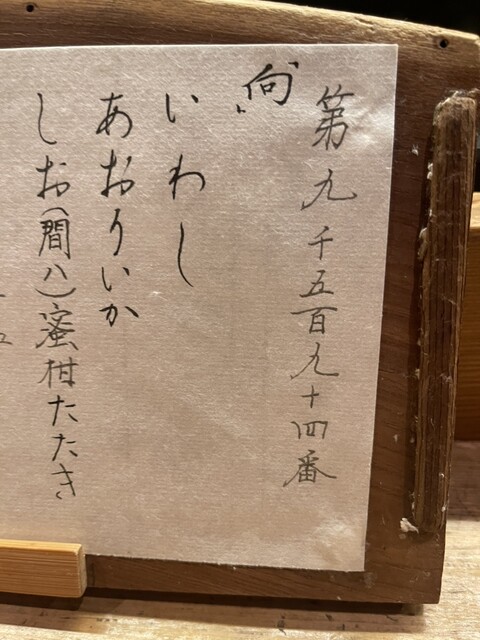 第九千五百九十四番
向
いわし
あおりいか
しお(間八)蜜柑たたき